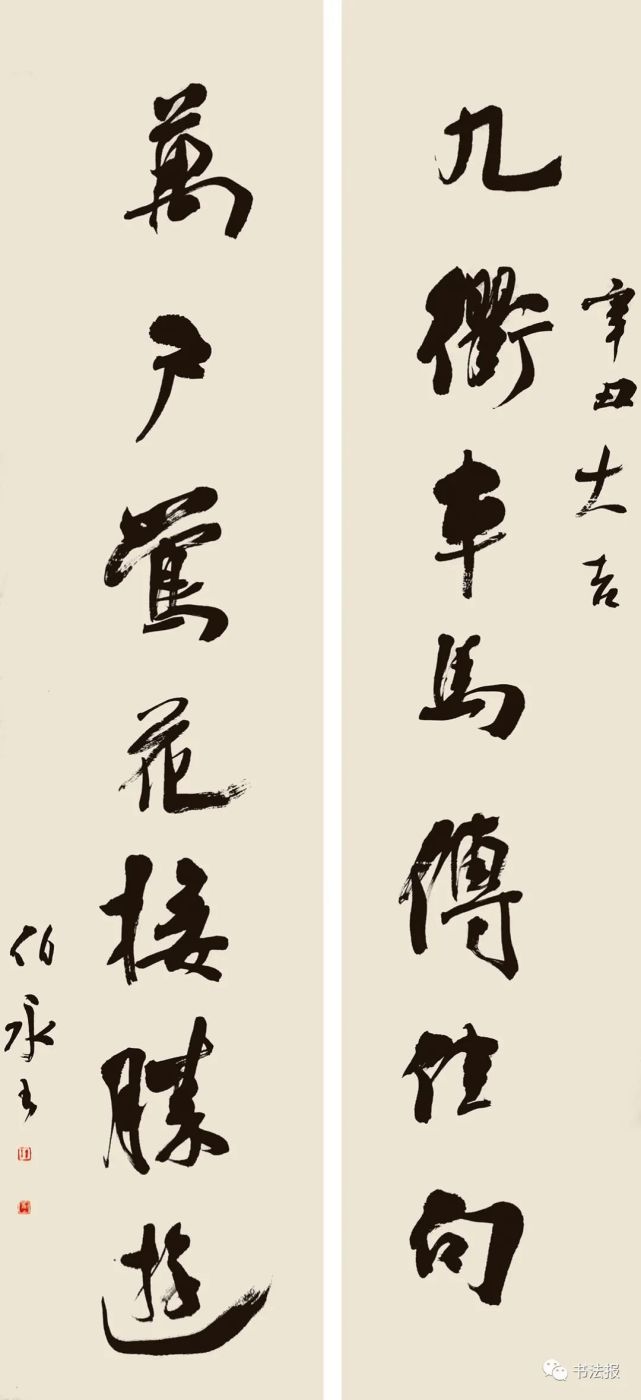 辛丑大吉
九衢車馬傳佳句
萬戶鶯花接勝遊
伯永书
书法报